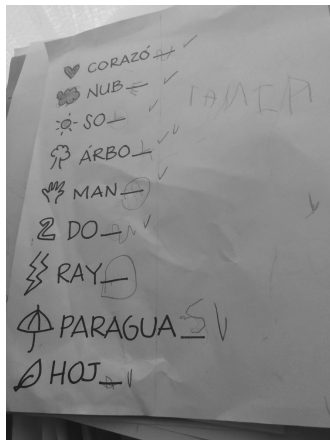 CORAZÓN
NUBE
SOL
ÁRBOL
MANO
2 DOS
RAYO
PARAGUAS
HOJA